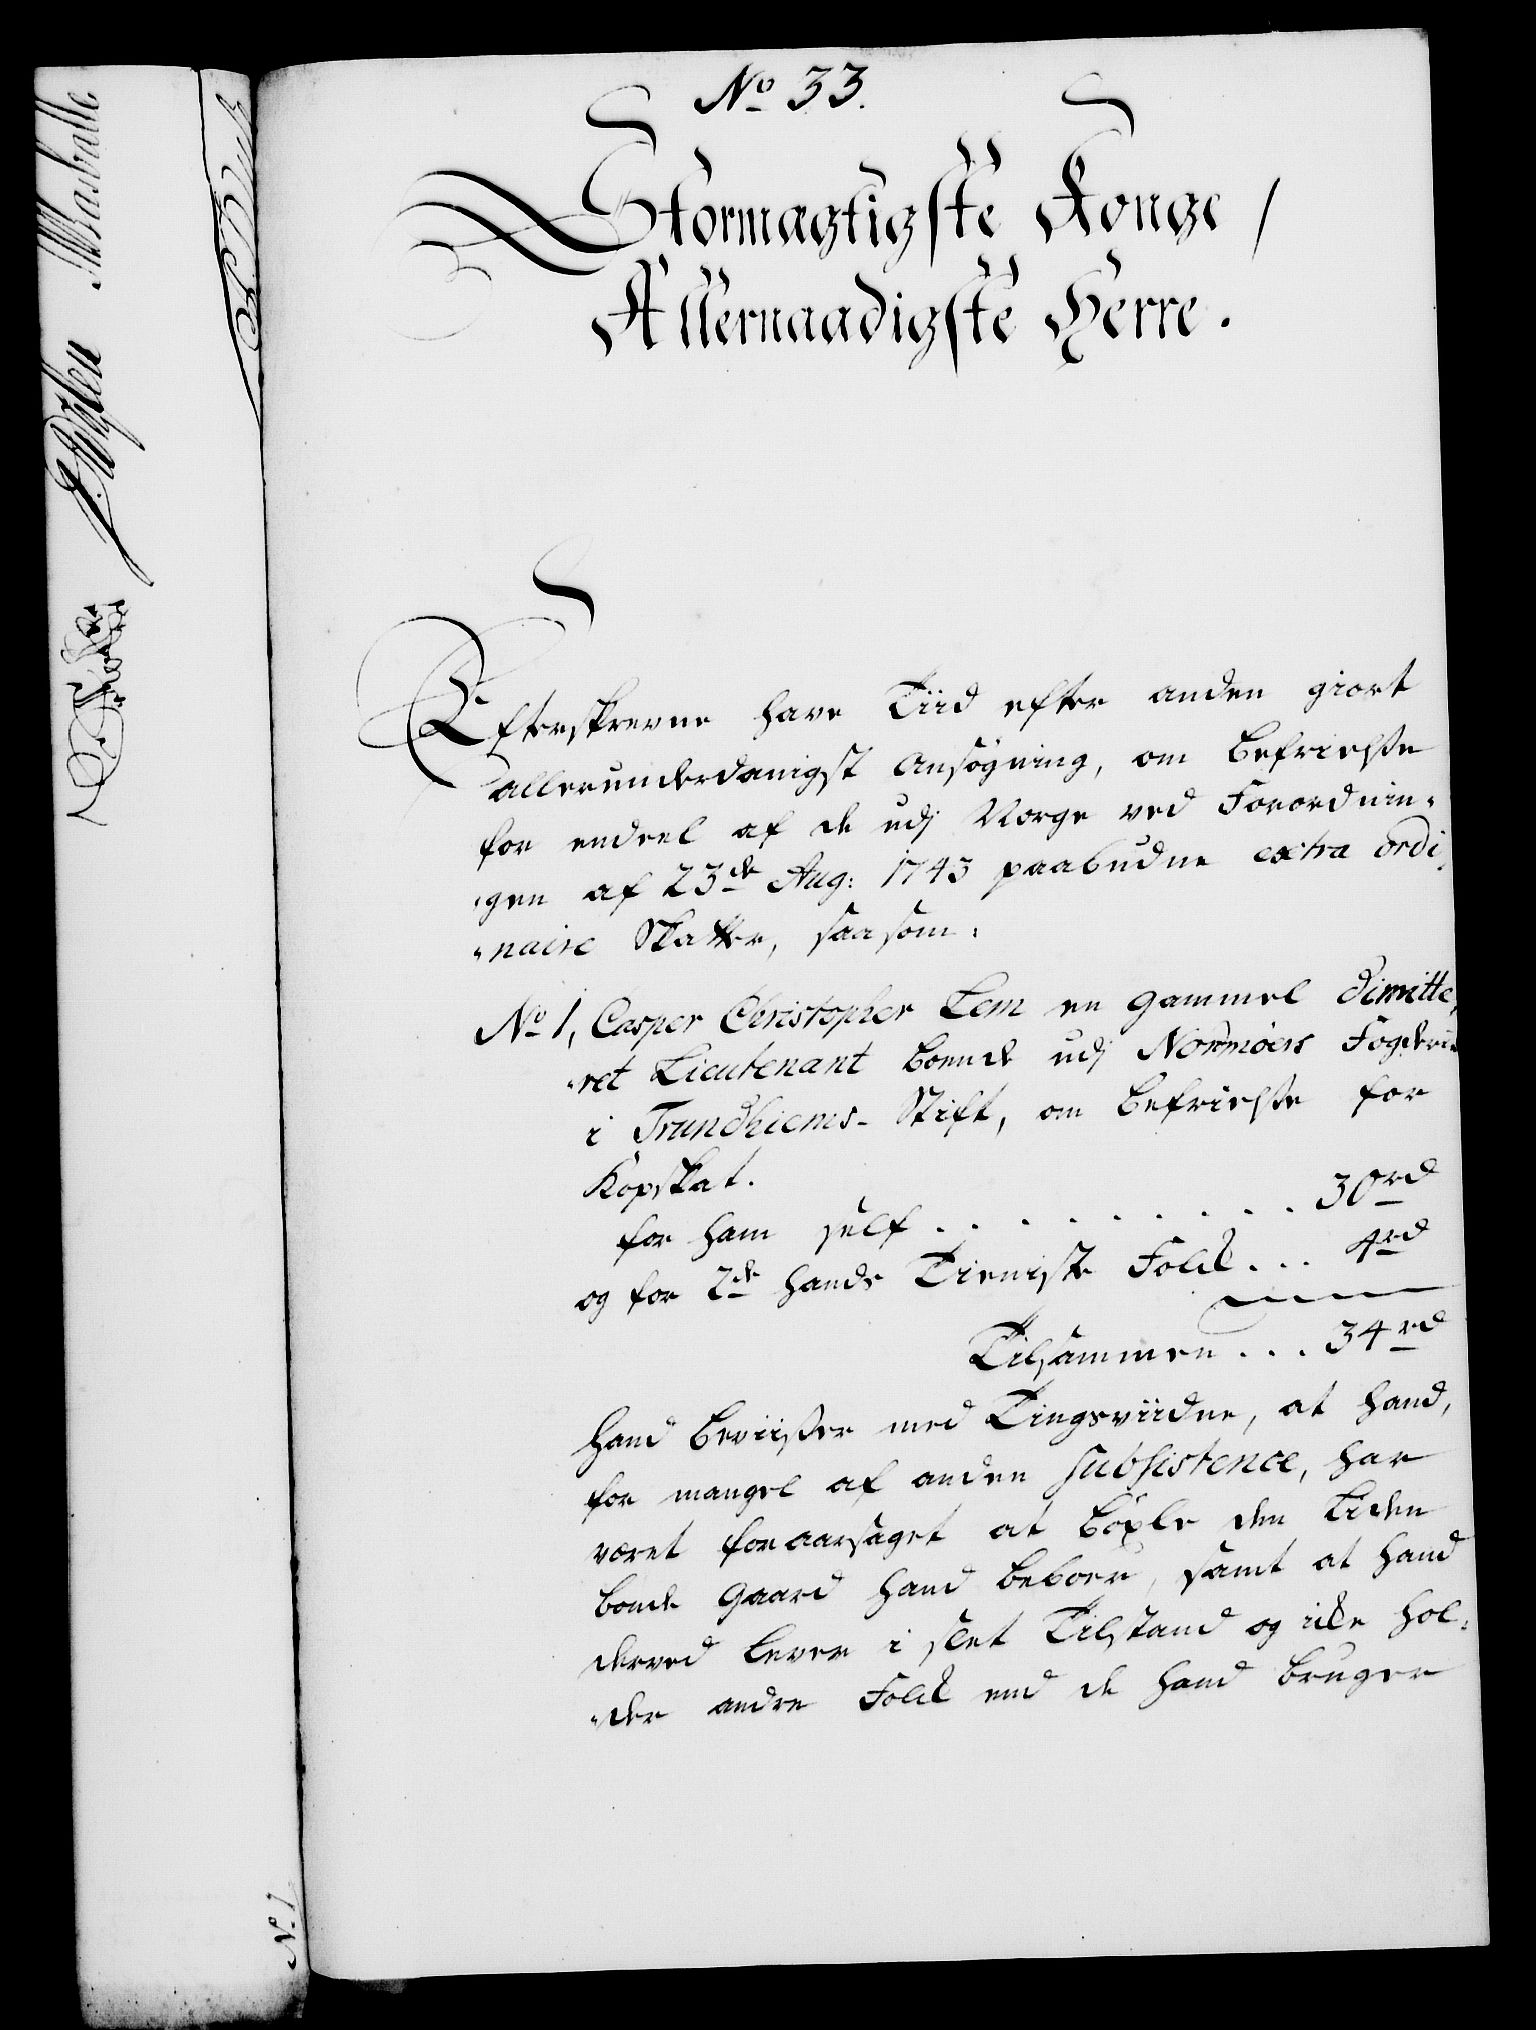 No 33.
Stormægtigste Konge /
Allernaadigste Herre.
Efterskrevne have Tiid efter anden giort
allerunderdanigst Ansøgning, om befrielse
for endeel af de udj Norge ved Forordnin-
-gen af 23de Aug: 1743 paabudne extra ordi-
-naire Skatter, saasom:
No 1, Casper Christopher Lem en gammel dimitte-
-ret Lieutenant boende udj Normøers Fogderie
i Trundhiems- Stift, om befrielse for
Kopskat.
for ham self . . . . . . . . . 30 rd
og for 2de hands Tieniste Folck . . . 4 rd
Tilsammen . . . 34 rd
Hand beviisser med Tingsviidne, at hand,
for mangel af anden subsistence, har
været foraarsaget at böxle den liden
bonde Gaard hand beboer, samt at hand
derved lever i slet Tilstand og icke hol-
-der andre Folck end de hand bruger
N. 1